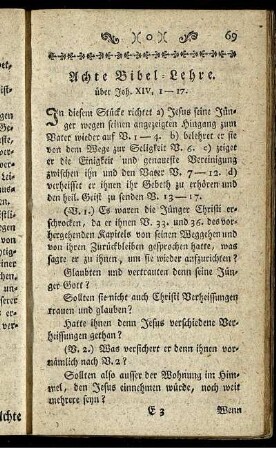 69
Achte Bibel-Lehre.
über Joh. XIV, 1—17.
In diesem Stücke richtet a) Jesus seine Jün-
ger wegen seinen angezeigten Hingang zum
Vater wieder auf V. 1—4. b) belehret er sie
von dem Wege zur Seligkeit V. 6. c) zeiget
er die Einigkeit und genaueste Vereinigung
zwischen ihn und den Vater V. 7—12. d)
verheisset er ihnen ihr Gebeth zu erhören und
den heil. Geist zu senden V. 13—17.
(V. 1.) Es waren die Jünger Christi er-
schrocken, da er ihnen V. 33. und 36. des vor-
hergehenden Kapitels von seinen Weggehen und
von ihren Zurückbleiben gesprochen hatte, was
sagte er zu ihnen, um sie wieder aufzurichten?
Glaubten und vertrauten denn seine Jün-
ger Gott?
Sollten sie nicht auch Christi Verheissungen
trauen und glauben?
Hatte ihnen denn Jesus verschiedene Ver-
heissungen gethan?
(V. 2.) Was versichert er denn ihnen vor-
nämlich nach V. 2?
Sollten also ausser der Wohnung im Him-
mel, den Jesus einnehmen würde, noch weit
mehrere seyn?
E 3 Wenn